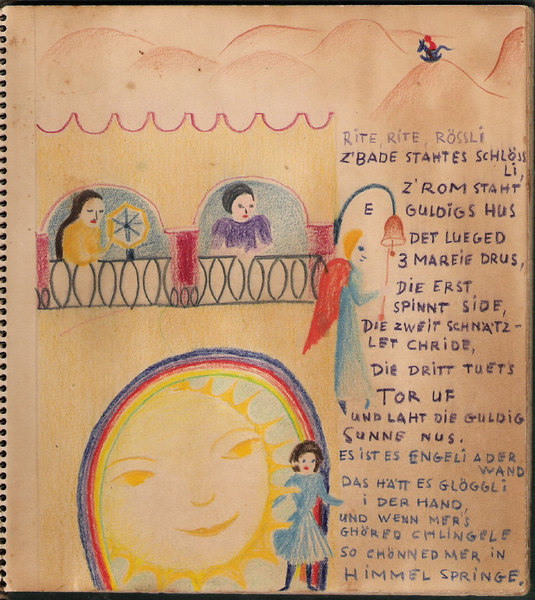 RITE, RITE, RÖSSLI
Z'BADE STAHT ES SCHLÖSS
LI,
Z'ROM STAHT
E GULDIGS HUS
DET LUEGED
3 MAREIE DRUS,
DIE ERST
SPINNT SIDE,
DIE ZWEIT SCHNÄTZ-
LET CHRIDE,
DIE DRITT TUET'S
TOR UF
UND LAHT DIE GULDIG
SUNNE NUS.
ES IST ES ENGELI A DER
WAND
DAS HÄTT ES GLÖGGLI
I DER HAND,
UND WENN MER'S
GHÖRED CHLINGELE
SO CHÖNNED MER IN
HIMMEL SPRINGE.